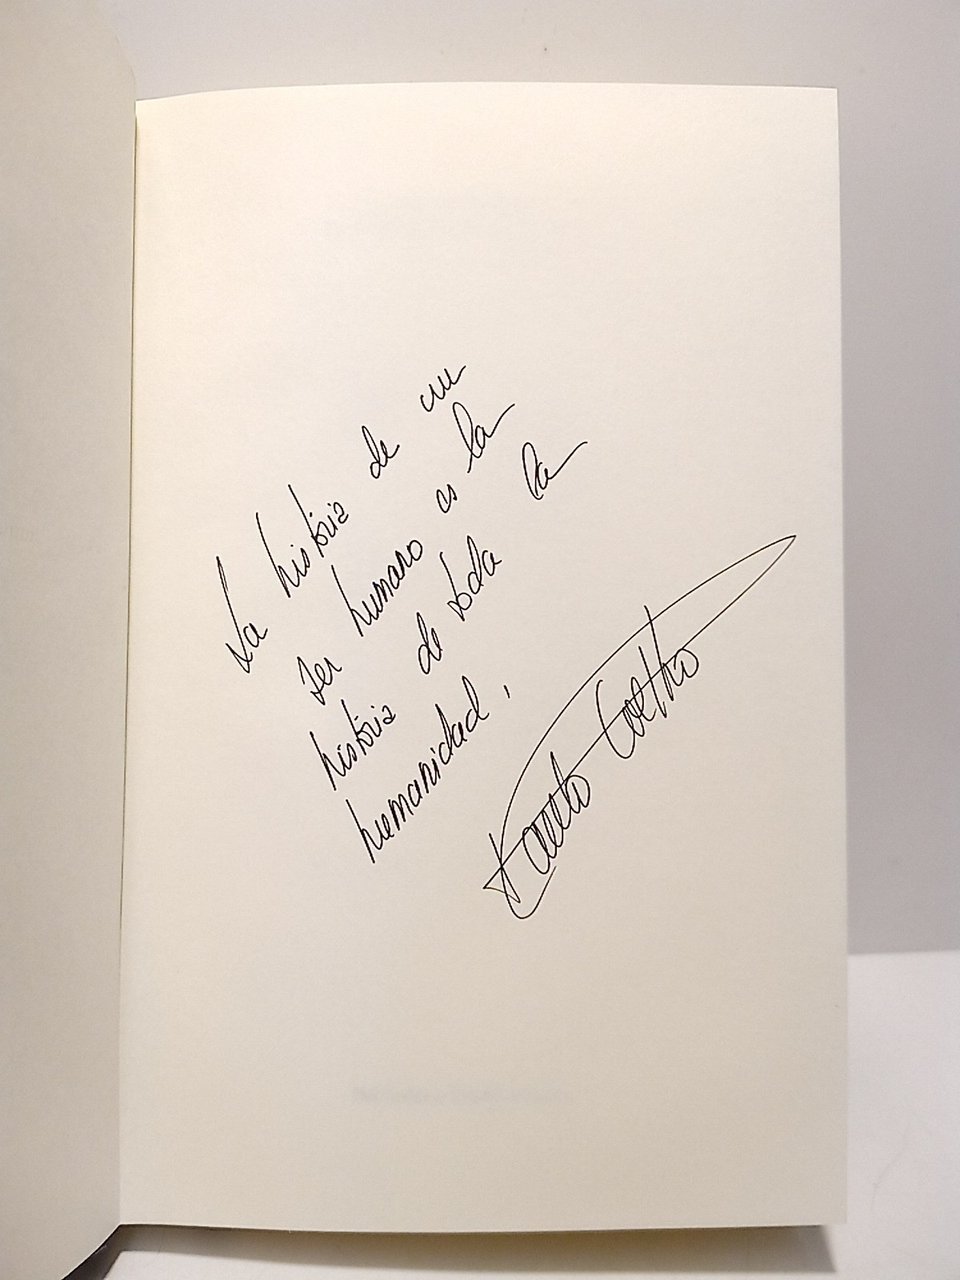 La história de un
ser humano es la
história de toda la
humanidad,
Paulo Coelho